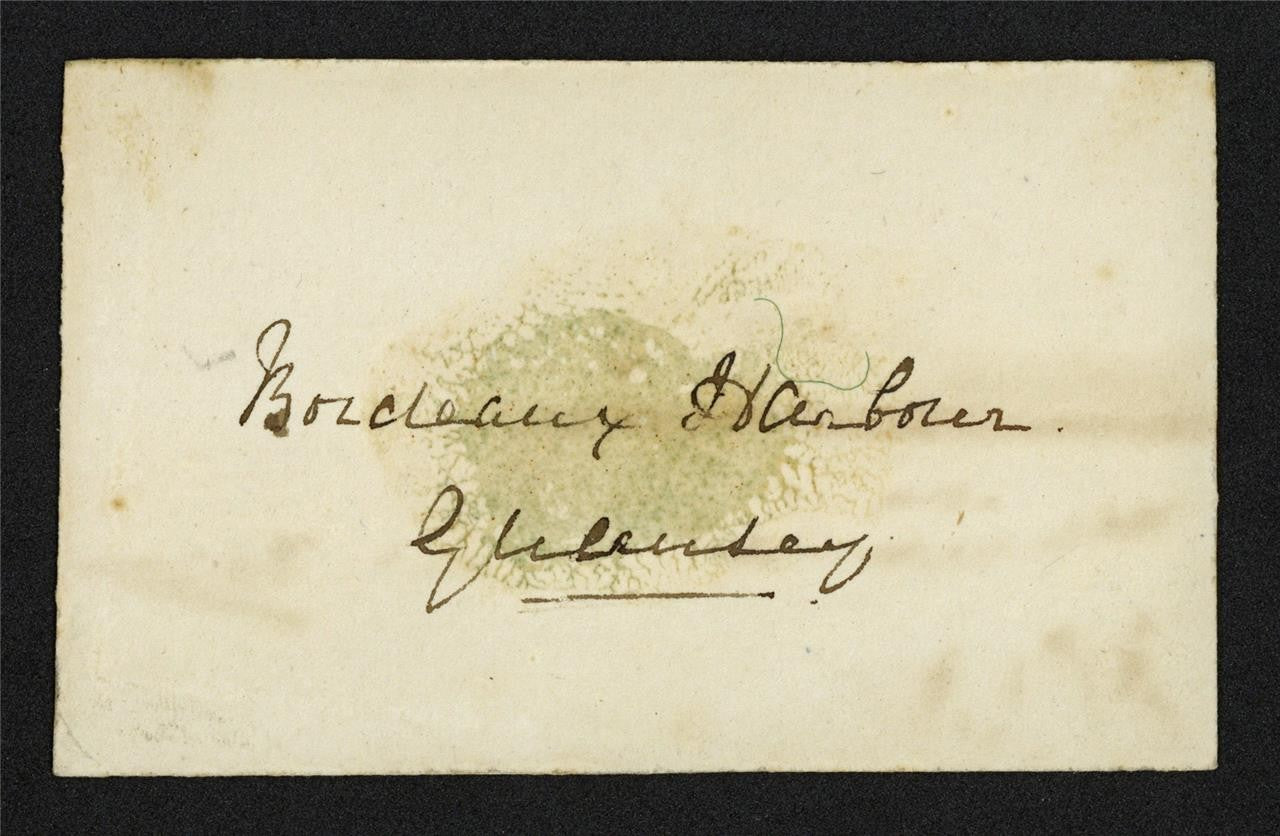 Bordeaux Harbour.
Guernsey.